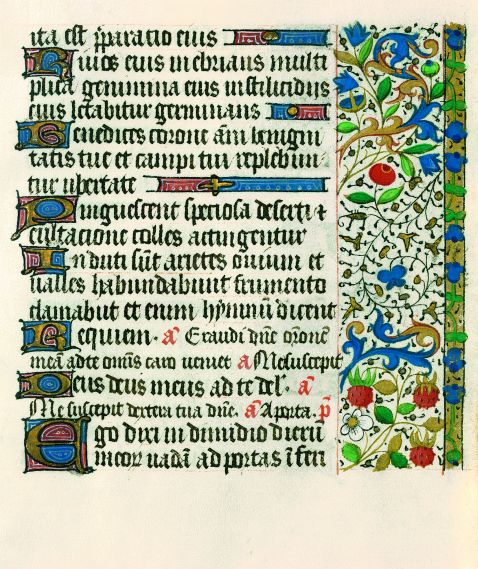 ita est p̄paratio eius
Riuos eius inebrians multi
plica genimina eius in stilicidijs
eius letabitur germinans
Benedices corone ām benigni
tatis tue et campi tui replebūn
tur ubertate
Pinguescent speciosa deserti ⁊
exultacione colles actingentur
Induti sūt arietes ouium et
ualles habundabunt frumento
clamabūt et enim hymnū dicent
Requiem. a Exaudi dn̄e orōnē
meā ad te omīs caro veniet a Me suscepit
Deus deus meus ad te del. a
Me suscepit dextera tua dn̄e. a A porta. p
Ego dixi in dimidio dierū
meor uadā ad portas īferi